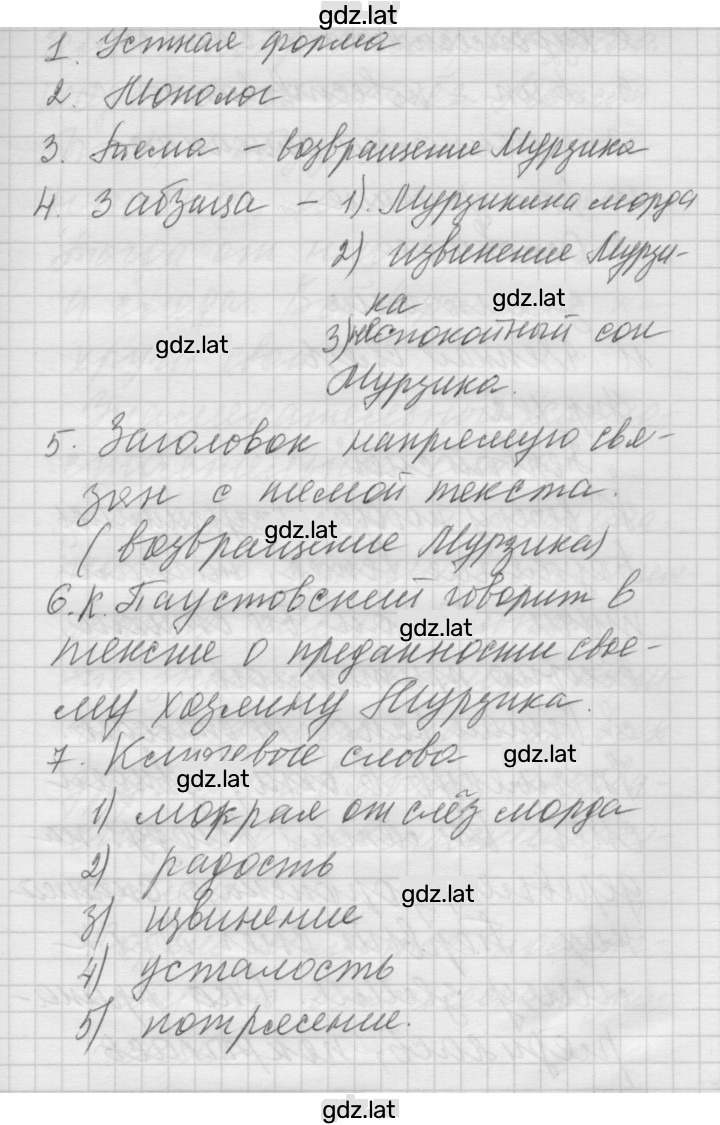 gdz.lat
1. Устная форма
2. Монолог
3. Тема – возвращение Мурзика
4. 3 абзаца – 1). Мурзикина морда
2) извинение Мурзи-
ка
gdz.lat
3) неспокойный сон
gdz.lat
Мурзика.
5. Заголовок напрямую свя-
зан с темой текста.
gdz.lat
(возвращение Мурзика)
6. К. Паустовский говорит в
gdz.lat
тексте о преданности свое-
му хозяину Мурзика.
7. Ключевые слова
gdz.lat
gdz.lat
1) мокрая от слёз морда
2) радость
gdz.lat
3) извинение
4) усталость
5) потрясение.
gdz.lat